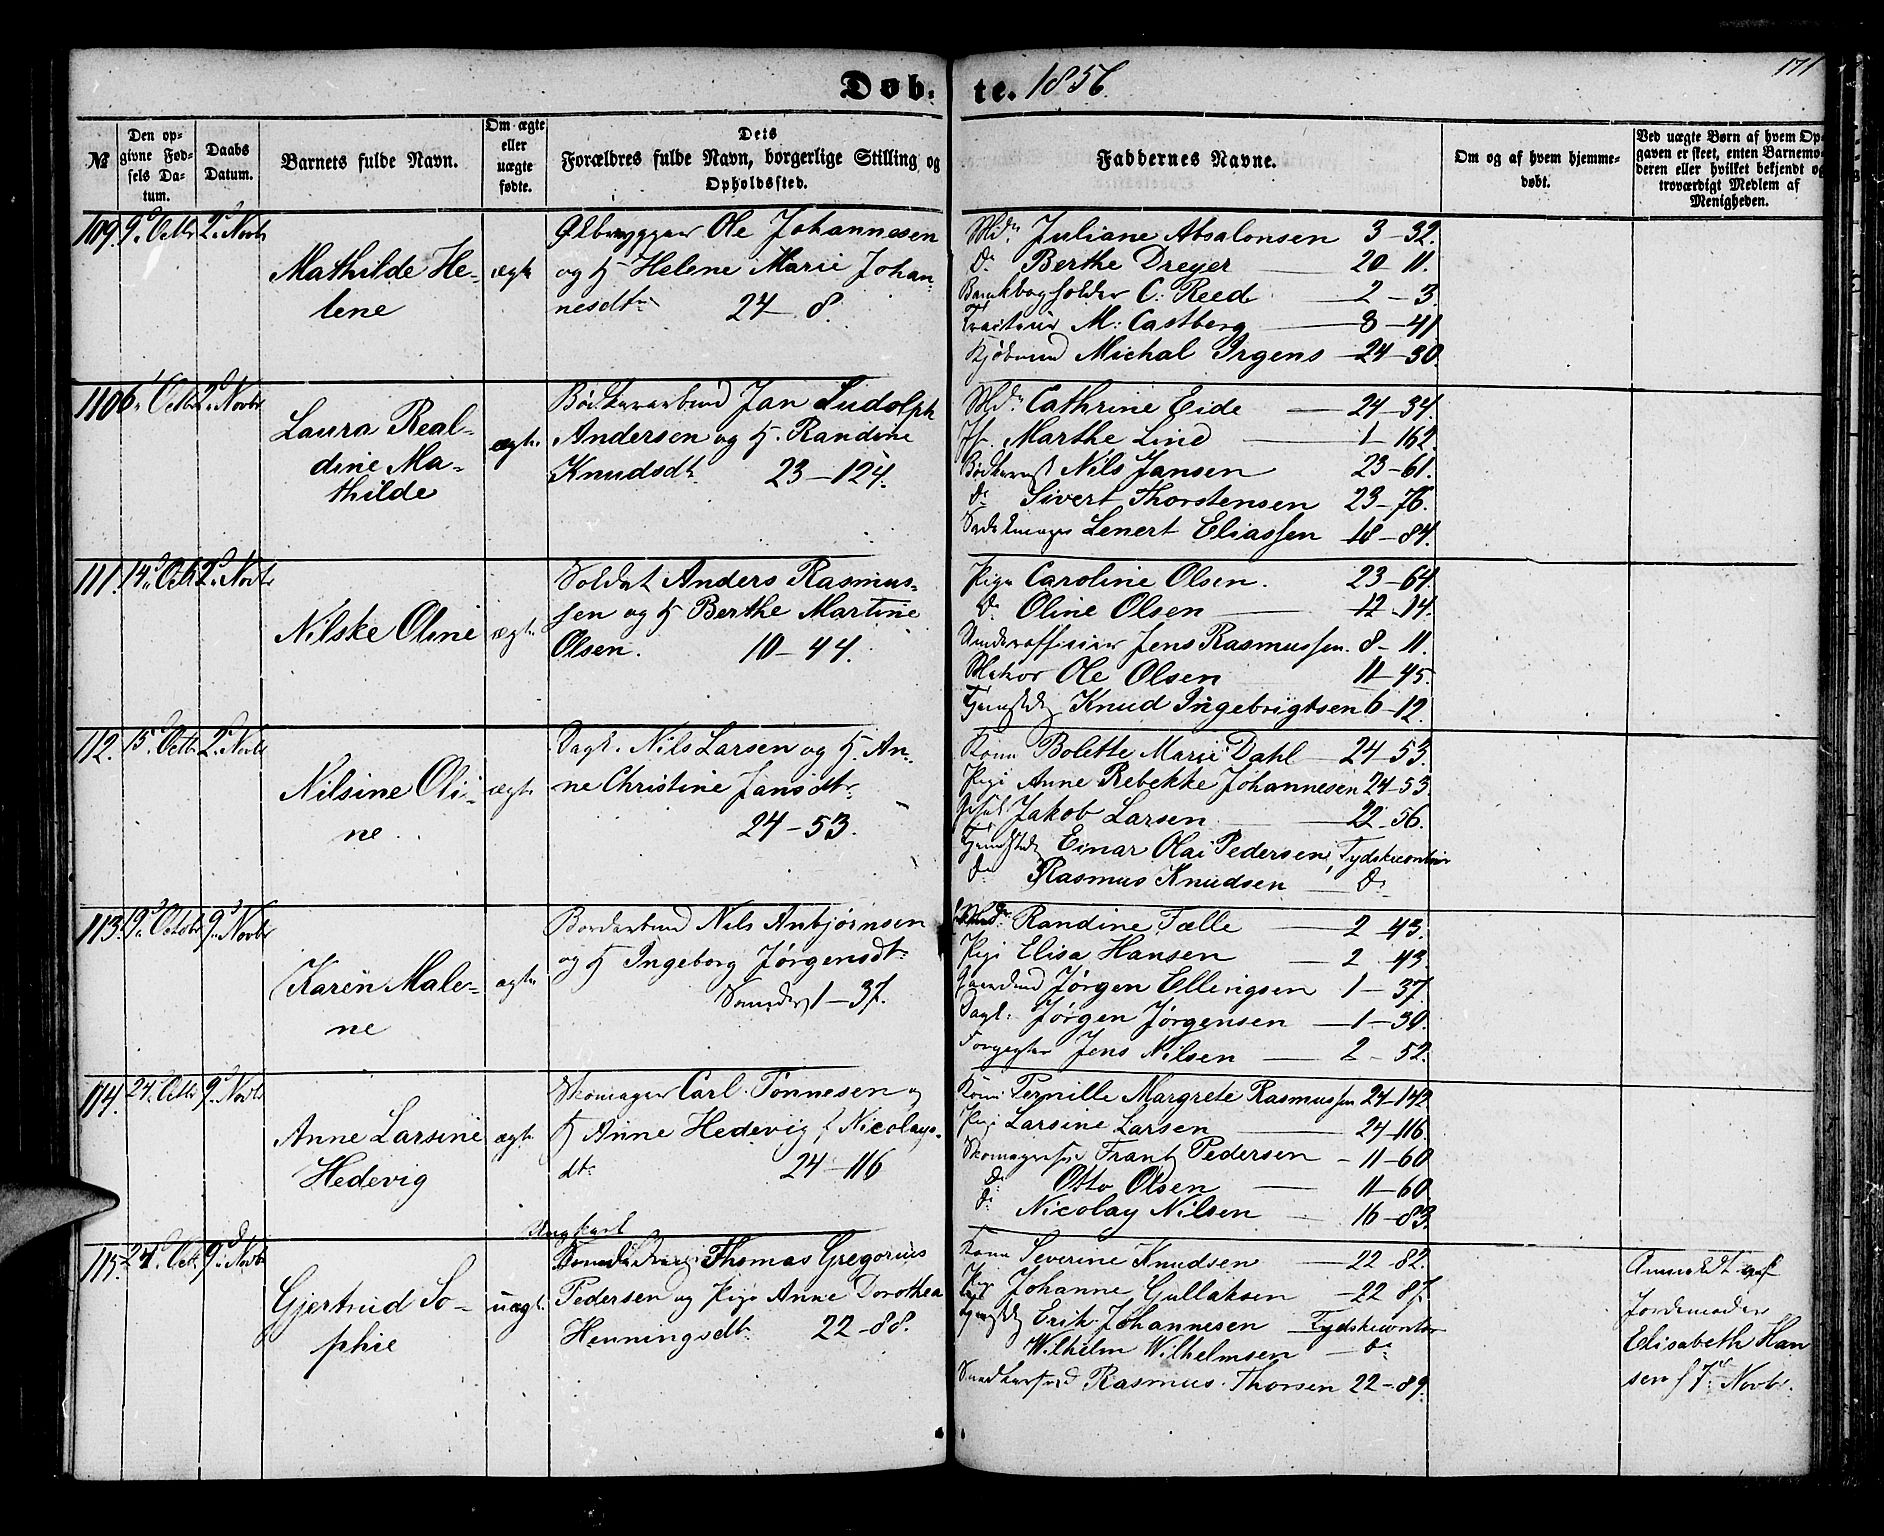 171
Døb- te. 1856
№
Den op-
givne Fød-
sels Da-
tum.
Daabs
Datum.
Barnets fulde Navn.
Om ægte
eller
uægte
fødte.
Dets
Forældres fulde Navn, borgerlige Stilling og
Opholdssted.
Faddernes Navne.
Om og af hvem hjemme-
døbt.
Ved uægte Børn af hvem Op-
gaven er skeet, enten Barnemo-
deren eller hvilket bekjendt og
troværdigt Medlem af
Menigheden.
109. 9d Octbr 2d Novbr
Mathilde He-
lene
ægte
Ølbrygger Ole Johannesen
og H Helene Marie Johan-
nesdtr 24 - 8.
Md: Juliane Absalonsen 3-32.
do Berthe Dreyer 20-11.
Bankbogholder C: Reed 2-3.
M: Castberg 8-41
Kjøbmd Michal Irgens 24-30
110 Octbr 2d Novbr
Laura Real-
dine Ma-
thilde
ægte
Bødkerarbmd Jan Ludolph
Andersen og H. Randine
Knudsdtr 23-124.
Md: Cathrine Eide 24-34.
Jfr. Marthe Lind 1-162
Bødkersv Nils Jansen 23-61.
do Sivert Thorstensen 23-76.
Lenert Eliassen 18-84.
111. 14d Octbr 2d Novbr
Nilske Oline
ægte
Soldat Anders Rasmus-
sen og H Berthe Martine
Olsen. 10-44.
Pige Caroline Olsen. 23-64
do Oline Olsen 12-14.
Underofficier Jens Rasmussen. 8-11.
Ole Olsen 11-45.
Knud Ingebrigtsen 6-12.
112. 15d Octbr 2d Novbr
Nilsine Oli-
ne
ægte
Dagl. Nils Larsen og H. An-
ne Christine Jansdtr
24-53.
Kone Bolette Marie Dahl 24-53.
Pige Anne Rebekke Johannesen 24-53.
Jakob Larsen 22-56.
Einar Olai Pedersen, Tydskecontoir
do Rasmus Knudsen do
113. 19d Octobr 9d Novbr
Karen Male-
ne
ægte
Bordarbmd Nils Anbjørnsen
og H Ingeborg Jørgensdtr
1-37.
Randine Tælle 2-43.
Pige Elisa Hansen 2-43.
Jørgen Ellingsen 1-37
Dagl. Jørgen Jørgensen 1-39.
Jens Nilsen 2-52.
114. 24. Octbr 9d Novbr
Anne Larsine
Hedevig
ægte
Skomager Carl Tønnesen og
H Anne Hedevig f Nicolays-
dtr 24-116
Kone Pernille Margrete Rasmussen 24-142
Pige Larsine Larsen 24-116.
Skomagersv Frantz Pedersen 11-60
do Otto Olsen 11-60.
do Nicolay Nilsen 16-83
115. 24d Oct. 9d Novbr
Gjertrud So-
phie
uægte
Ungkarl
Thomas Gregorius
Pedersen og Pige Anne Dorothea
Henningsdtr 22-88.
Kone Severine Knudsen 22-82.
Pige Johanne Gullaksen 22-87.
Erik Johannesen Tydskecontor
Wilhelm Wilhelmsen do
Rasmus Thorsen 22-89.
Anmeldt af
Jordemoder
Elisabeth Han
sen f 7d Novbr.